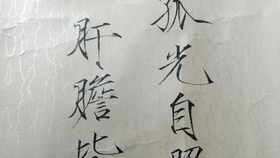 孤光自照
肝膽皆